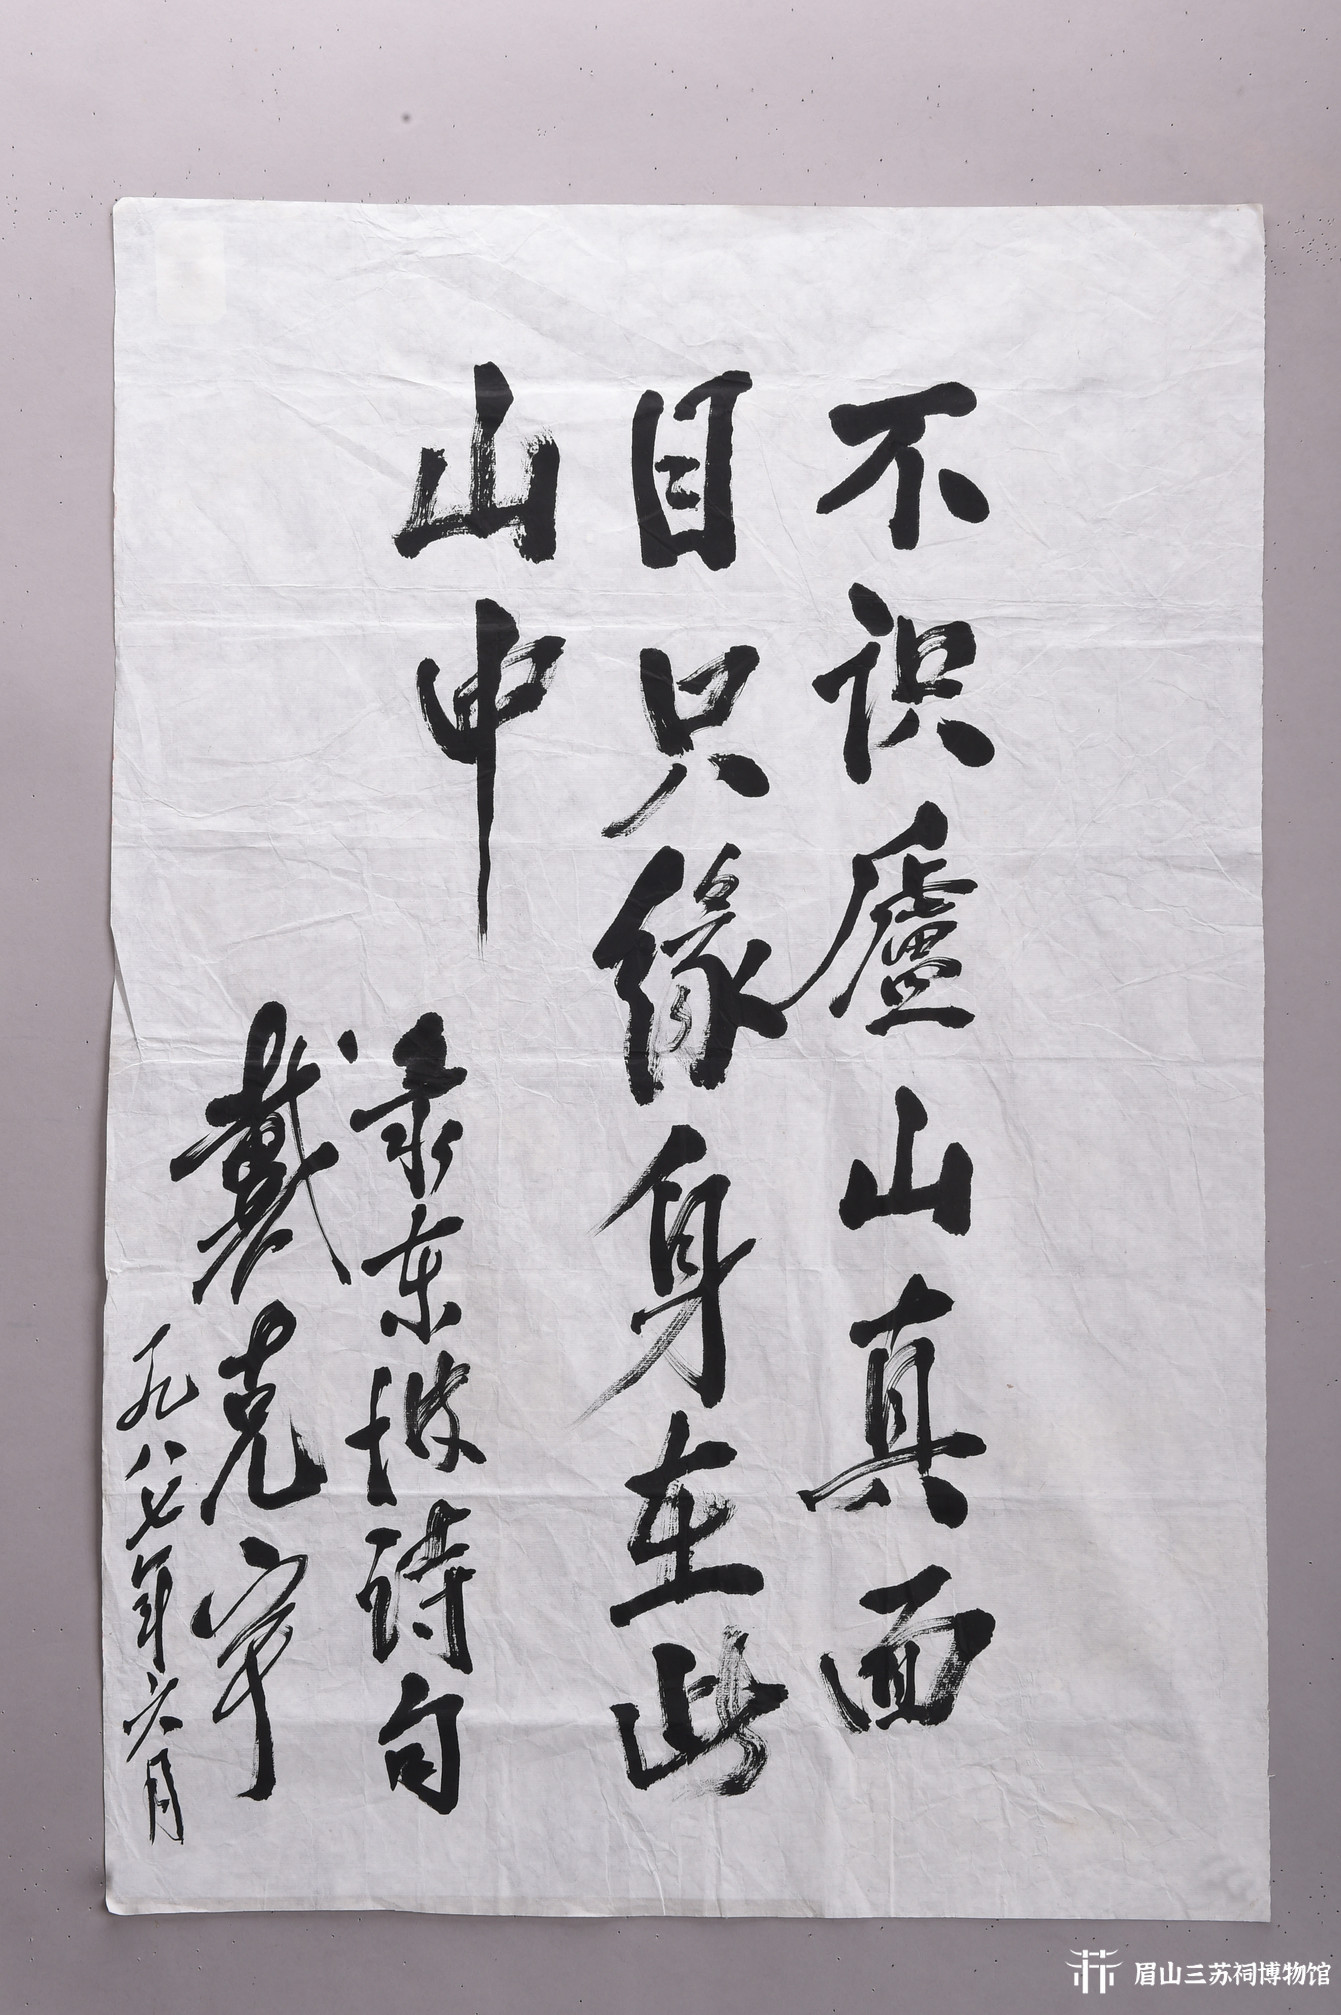 不识廬山真面
目只缘身在此
山中
录东坡诗句
戴克宇
一九八七年六月
眉山三苏祠博物馆